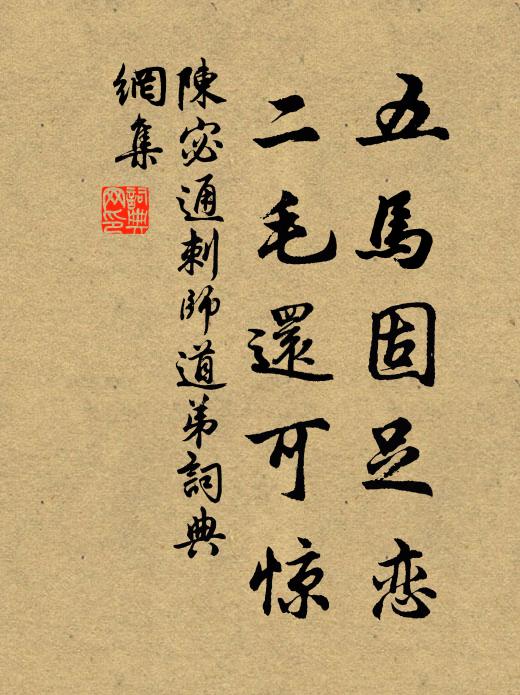 五馬固足恋
二毛還可惊
陳宓通刺師道弟詞典
網集
詞典
网印